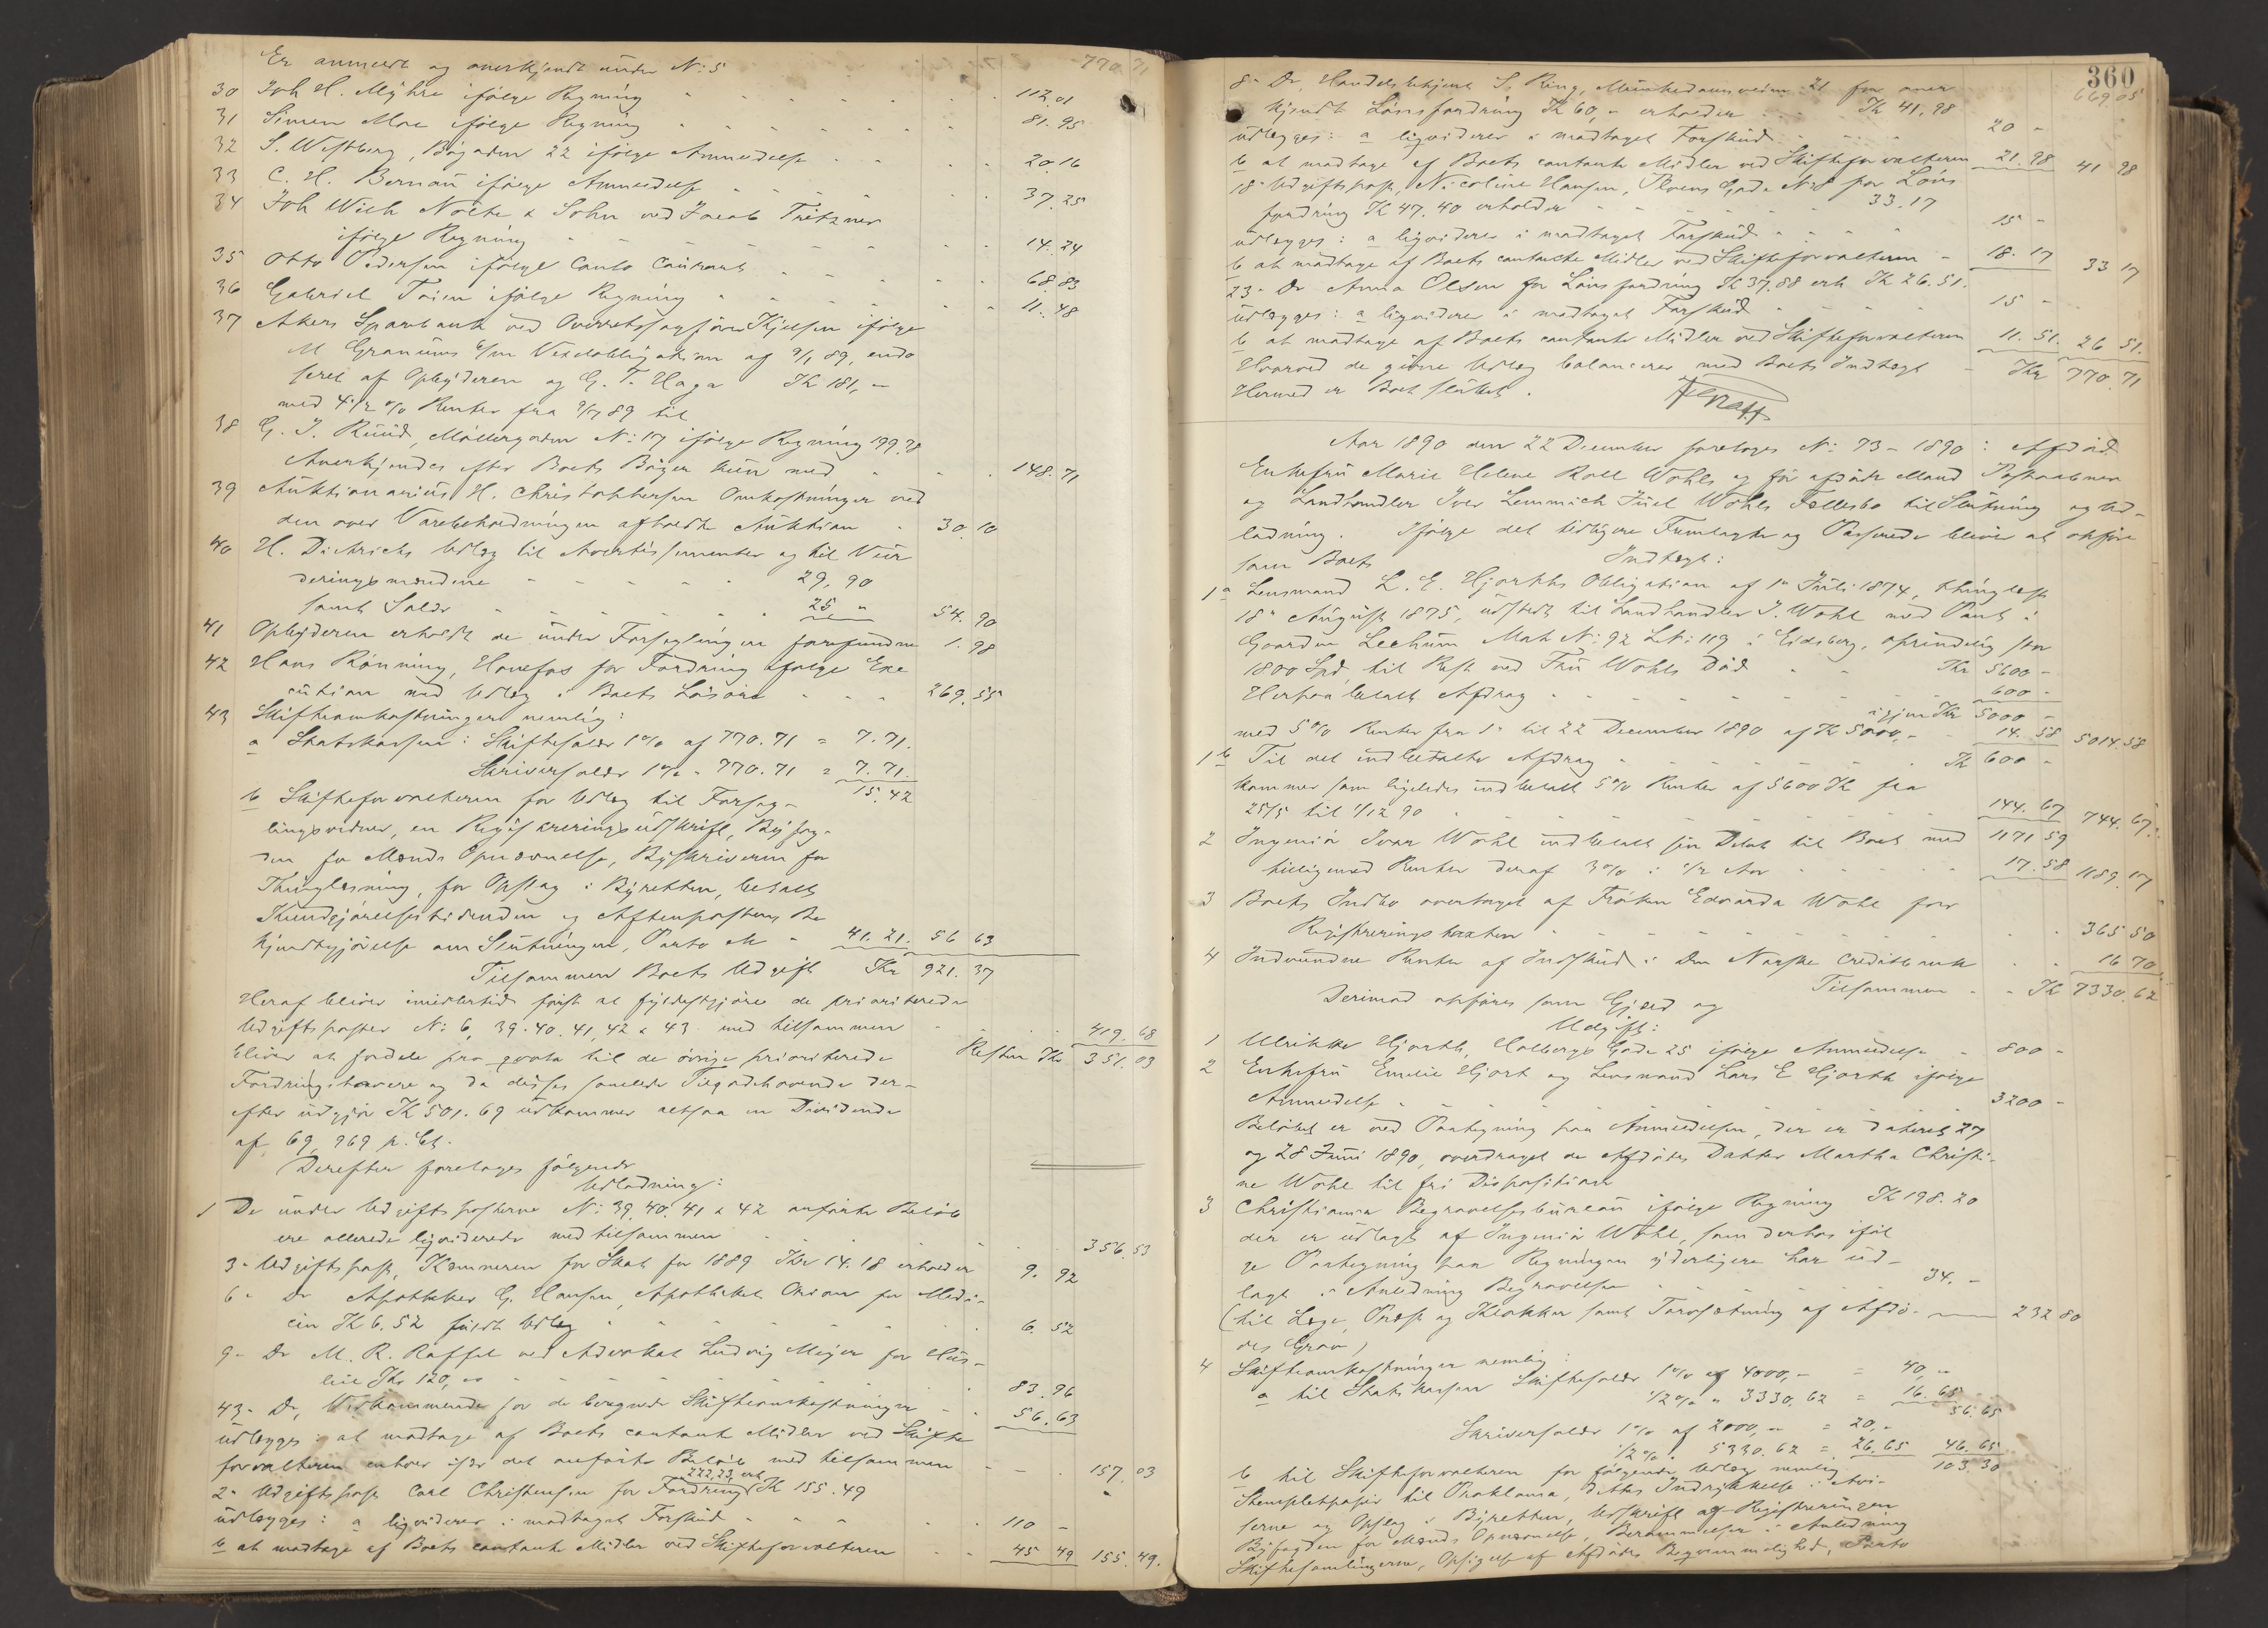 770.71
Er anmeldt og anerkjendt under N: 5
30 Joh H. Myhre ifølge Regning 112.01
31 Simen Moe ifølge Regning 81.95
32 S. Westberg, Bogaden 22 ifølge Anmeldelse 20.16
33 C. H. Bernau ifølge Anmeldelse 37.25
34 Joh Wilh Nolte & Sohn ved Jacob Tritzner
ifølge Regning 14.24
35 Otto Pedersen ifølge Conto Courant 68.83
36 Gabriel Toien ifølge Regning 11.48
37 Akers Sparebank ved Overretssagfører Kjelsen ifølge
M Granums Vexelobligation af 9/1 89, endo
seret af Opbyderen og G. T. Haga Kr 181,-
med 4 1/2 % Renter fra 9/7 89 til
38 G. J. Ruud, Møllergaden N: 17 ifølge Regning 199.78
Anerkjendes efter Boets Bøger kun med 148.71
39 Auktionarius H. Christophersen Omkostninger ved
den over Varebeholdningen afholdte Auktion 30.10
40 H. Dietrichs Udlæg til Avertissementer og til Vur
deringsmændene 29,90
samt Salær 25 " 54.90
41 Opbyderen erholdt de under Forseglingen forefundne 1.98
42 Hans Rønning, Hønefos for Fordring ifølge Exe
cution med Udlæg i Boets Løsøre 269.55
43 Skifteomkostninger nemlig:
a Statskassen: Skiftesalær 1 % af 770.71 = 7.71.
Skriversalær 1 % " 770.71 = 7.71.
15.42
b Skifteforvalteren for Udlæg til Forseg-
lingsvidner, en Registreringsudskrift, Byfog-
den for Mænds Opnævnelse, Byskriveren for
Thinglæsning, for Opslag i Byretten, betalt
Kundgjørelsestidenden og Aftenpostens Be
kjendtgjørelse om Slutningen, Porto etc 41.21. 56 63
Tilsammen Boets Udgift Kr 921.37
Heraf bliver imidlertid først at fyldestgjøre de prioriterede
Udgiftsposter N: 6, 39. 40. 41, 42 & 43 med tilsammen 419.68
Resten Kr 351.03
bliver at fordele pro qvota til de øvrige prioriterede
Fordringshavere og da disses samlede Tilgodehavende der-
efter udgjør Kr 501.69 udkommer altsaa en Dividende
af 69,969 p. Ct.
Derefter foretoges følgende
Udlodning:
1 De under Udgiftsposterne N: 39. 40. 41 & 42 anførte Beløb
ere allerede ligviderede med tilsammen 356.53
3- Udgiftspost, Kæmneren for Skat for 1889 Kr 14.18 erholder 9.92
6- Do Apotheker G. Hansen, Apotheket Orion for Medi-
cin Kr 6.52 fuldt Udlæg 6.52
9- Do M. R. Raffel ved Advokat Ludvig Meyer for Hus-
leie Kr 120,00 83.96
43- Do, Vedkommende for de beregnede Skifteomkostninger 56.63
udlægges at modtage af Boets contante Midler ved Skifte
forvalteren enhver især det anførte Beløb med tilsammen 157.03
2- Udgiftspost Carl Christensen for Fordring 222,23, erh Kr 155.49
udlægges: a ligviderer i modtaget Forskud 110 -
b at modtage af Boets contante Midler ved Skifteforvalteren 45 49 155.49.
360
669.05
8- Do, Handelsbetjent S. Ring, Munkedamsveien 21 for aner
kjendt Lønsfordring Kr 60,- erholder Kr 41,98
udlægges: a ligviderer i modtaget Forskud 20 -
b at modtage af Boets contante Midler ved Skifteforvalteren 21.98 41 98
18- Udgiftspost, Nicoline Hansen, Thorens Gade N: 8 for Løns
fordring Kr 47.40 erholder 33.17
udlægges: a ligviderer i modtaget Forskud 15 -
b at modtage af Boets contante Midler ved Skifteforvalteren 18.17 33 17
23- Do Anna Olsen for Lønsfordring Kr 37,88 erh Kr 26.51.
udlægges: a ligviderer i modtaget Forskud 15 -
b at modtage af Boets contante Midler ved Skifteforvalteren 11.51. 26 51.
Hvorved de givne Udlæg balancerer med Boets Indtægt Kr 770.71
Hermed er Boet sluttet.
Aar 1890 den 22 December foretoges N: 73 - 1890: Afdøde
Enkefru Marie Helene Roll Wohls og før afdøde Mand Postaabner
og Landhandler Iver Lemmich Juel Wohls Fællesbo til Slutning og Ud-
lodning. Ifølge det tidligere Fremlagte og Passerede bliver at opføre
som Boets Indtægt:
1a Lensmand L. E. Hjorths Obligation af 1- Juli 1874, thinglæst
18- August 1875, udstedt til Landhandler I. Wohl med Pant i
Gaarden Lekum Mat N: 92 L N: 119 i Eidsberg, oprindelig stor
1800 Spd, til Rest ved Fru Wohls Død Kr 5600 -
Herpaa betalt Afdrag 600 -
igjen Kr 5000 -
med 5 % Renter fra 1- til 22 December 1890 af Kr 5000,- 14.58 5014.58
1b Til det indbetalte Afdrag Kr 600 -
kommer som ligeledes indbetalt 5 % Renter af 5600 Kr fra
25/5 til 1/12 90 144.67 744.67.
2 Ingeniør Ivar Wohl indbetalt sin Debet til Boet med 1171 59
tilligemed Renter deraf 3 % i 1/2 Aar 17.58 1189.17
3 Boets Indbo overtaget af Frøken Edvarda Wohl for
Registreringstaxten 365 50
4 Indvundne Renter af Indskud i Den Norske Creditbank 16 70
Tilsammen Kr 7330.62
Derimod opføres som Gjæld og
Udgift:
1 Ulrikke Hjorth, Holbergs Gade 25 ifølge Anmeldelse 800 -
2 Enkefru Emilie Hjort og Lensmand Lars E Hjorth ifølge
Anmeldelse 3200 -
Beløbet er ved Paategning paa Anmeldelsen, der er dateret 27
og 28 Juni 1890, overdraget de Afdødes Datter Martha Christi-
ne Wohl til fri Disposition
3 Christiania Begravelsesbureau ifølge Regning Kr 198.20
der er udlagt af Ingeniør Wohl, som derhos iføl
ge Paategning paa Regningen yderligere har ud-
lagt i Anledning Begravelsen 34.-
(til Læge, Præst og Klokker samt Torvsætning af Afdø- 232 80
des Grav)
4 Skifteomkostninger nemlig:
a til Statskassen Skiftesalær 1 % af 4000,- = 40,-
1/2 % " 3330,62 = 16.65
56.65
Skriversalær 1 % af 2000,- = 20,-
1/2 % " 5330.62 = 26.65 46.65
103.30
b til Skifteforvalteren for følgende Udlæg nemlig
Stempletpapir til Proklama, dettes Indrykkelse i Avi-
serne og Opslag i Byretten, Udskrift af Registreringen
Byfogden for Mænds Opnævnelse, Berammelser i Anledning
Skiftesamlingerne, Opsigelse af Afdødes Beqvemmelighed, Porto